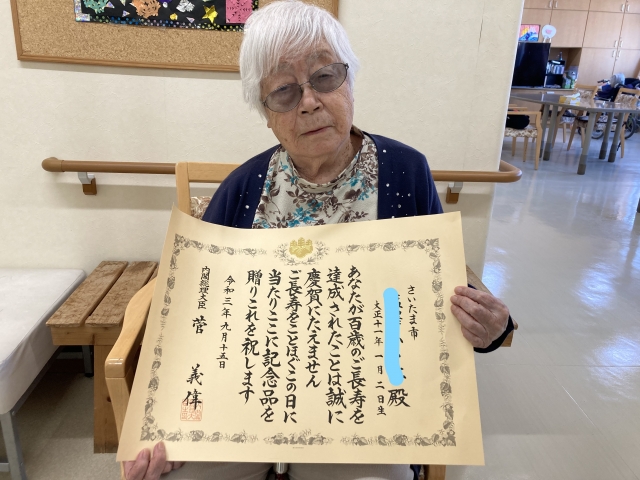 さいたま市
殿
大正十一年一月二日生
あなたが百歳のご長寿を
達成されたことは誠に
慶賀にたえません
ご長寿をことほぐこの日に
当たりここに記念品を
贈りこれを祝します
令和三年九月十五日
内閣総理大臣 菅 義偉